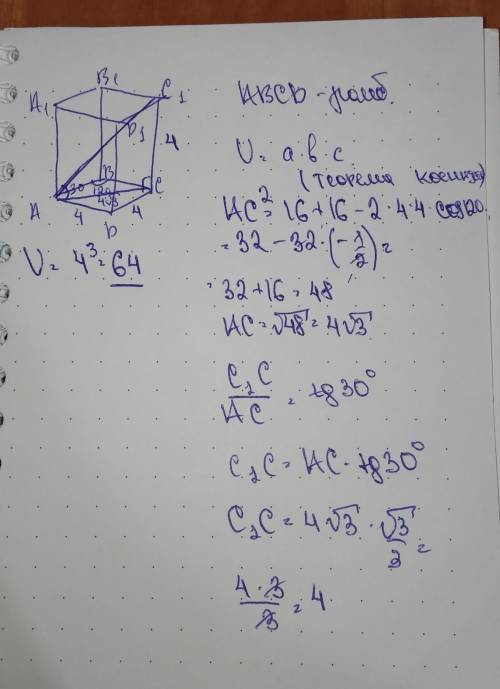 B1
C1
A1
D1
4
30
B
120
4√3
C
A
4
4
D
V = 4³ = 64
ABCD - ромб.
V = a·b·c
(теорема косинусов)
AC² = 16 + 16 - 2·4·4·cos120
= 32 - 32·(-1/2) =
= 32 + 16 = 48
AC = √48 = 4√3
C₁C/AC = tg30°
C₁C = AC·tg30°
C₁C = 4√3·√3/3 =
4·3/3 = 4